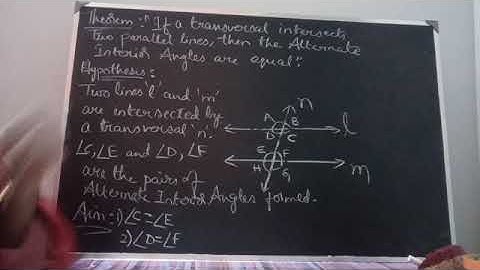 Theorem:- "If a transversal intersects
Two parallel lines, then the Alternate
Interior Angles are equal".
Hypothesis:
Two lines 'l' and 'm'
are intersected by
a transversal 'n'.
∠C, ∠E and ∠D, ∠F
are the pairs of
Alternate Interior Angles formed.
Aim:- 1) ∠C = ∠E
2) ∠D = ∠F
n
A B
D C
l
E F
H G
m